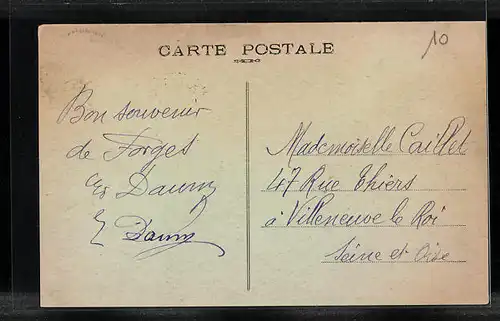 CARTE POSTALE
10
Bon souvenir
de Forges
Daum
Daum
Mademoiselle Caillet
47 Rue Thiers
à Villeneuve le Roi
Seine et Oise